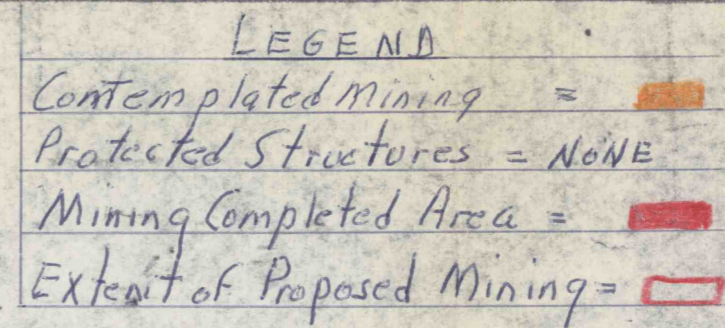 LEGEND
Contemplated Mining =
Protected Structures = NONE
Mining Completed Area =
Extent of Proposed Mining =